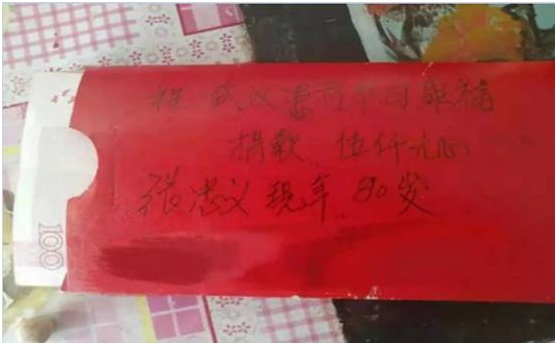 祝 武汉患者早日康福
捐款 伍仟元
张忠义 现年 80岁
100